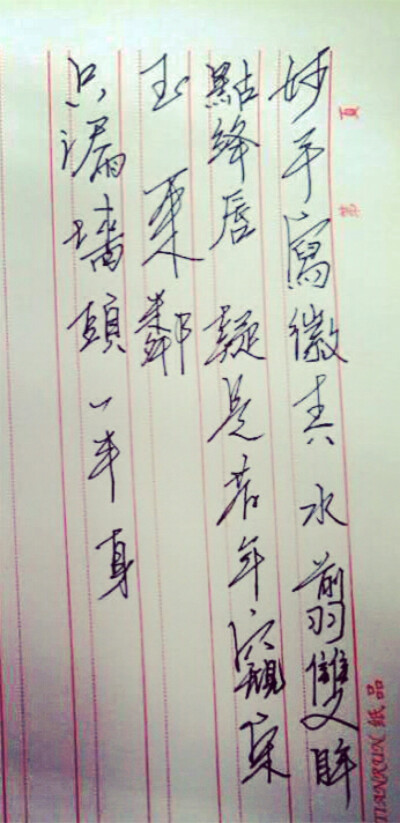 頁 第
妙手寫徽真水翦雙眸
點絳唇 疑是昔年窺宋
玉 東鄰
只漏墻頭一半身
TIANRUN 纸品